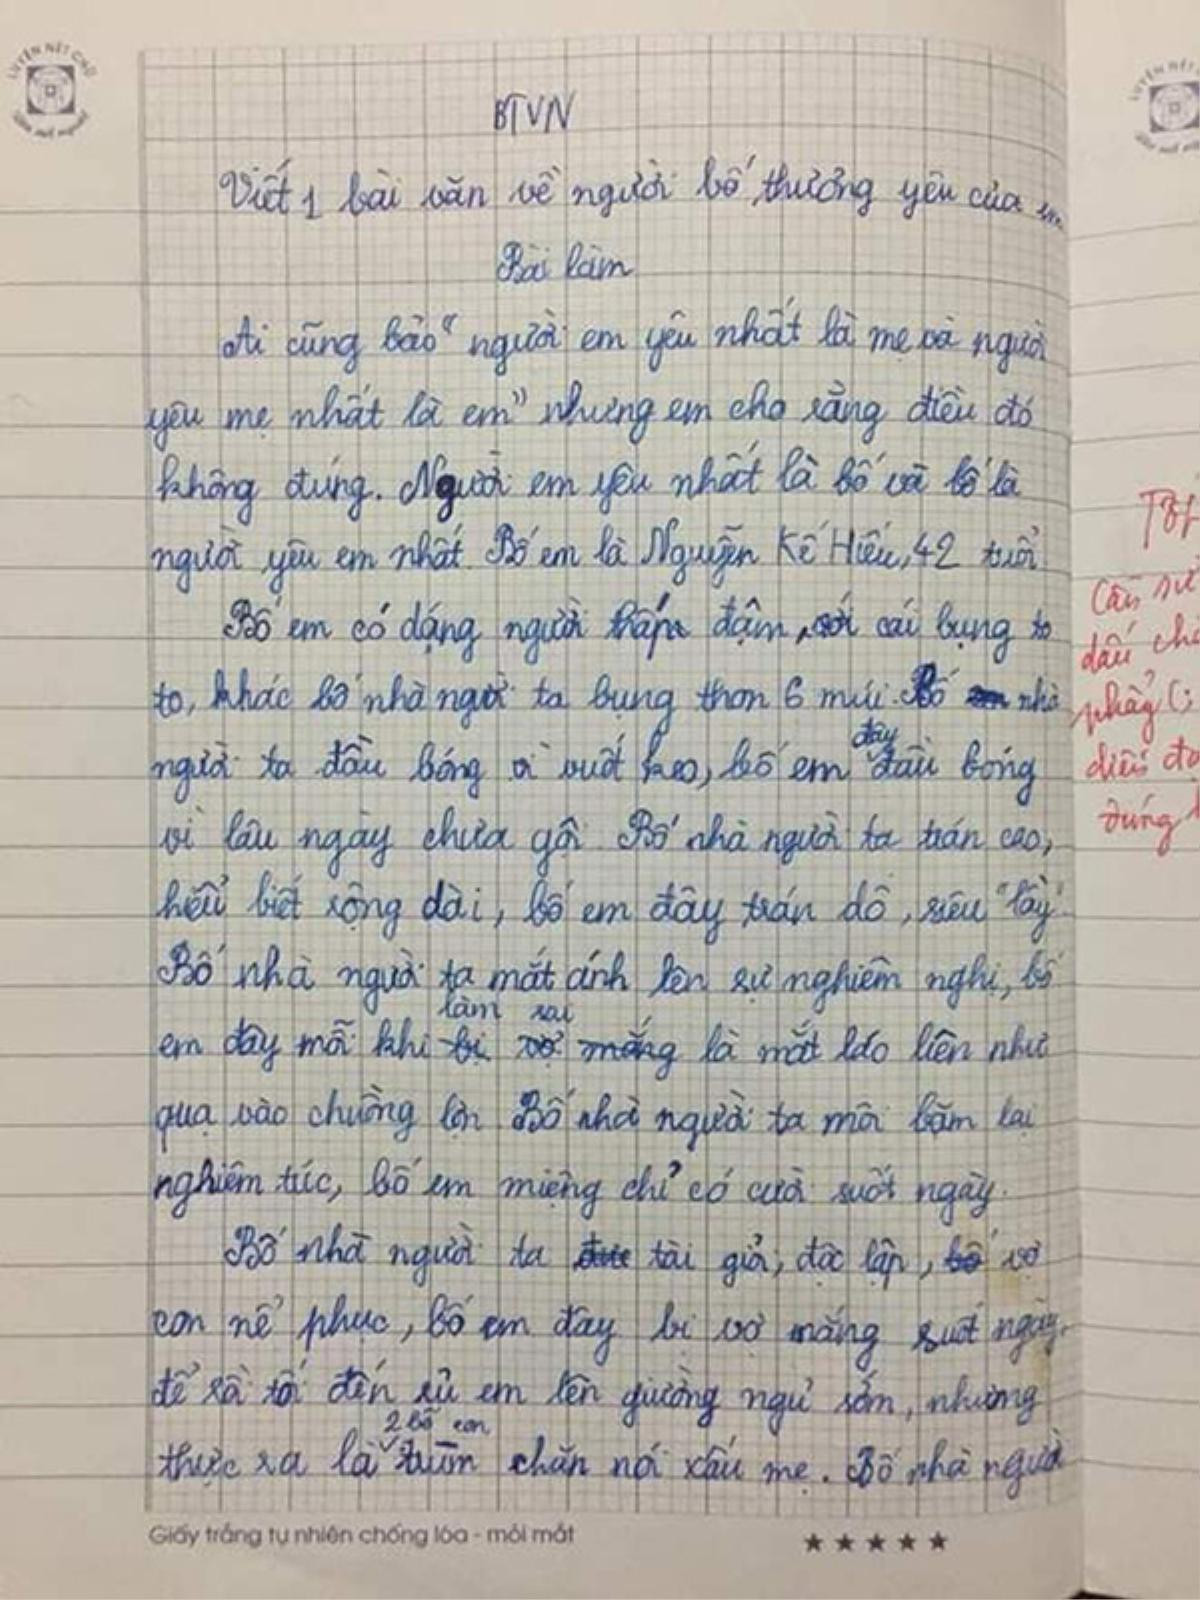 LUYỆN NÉT CHỮ
BTVN
Viết 1 bài văn về người bố thương yêu của em
Bài làm
Ai cũng bảo "người em yêu nhất là mẹ và người
yêu mẹ nhất là em" nhưng em cho rằng điều đó
không đúng. Người em yêu nhất là bố và bố là
người yêu em nhất. Bố em là Nguyễn Kế Hiếu, 42 tuổi
Bố em có dáng người thấp đậm, với cái bụng to
to, khác bố nhà người ta bụng thon 6 múi. Bố em nhà
người ta đầu bóng vì vuốt keo, bố em đây đầu bóng
vì lâu ngày chưa gội. Bố nhà người ta trán cao,
hiểu biết rộng dài, bố em đây trán dô, siêu "lầy".
Bố nhà người ta mắt ánh lên sự nghiêm nghị, bố
làm sai
em đây mỗi khi bị vợ mắng là mắt láo liên như
quạ vào chuồng lợn. Bố nhà người ta môi bặm lại
nghiêm túc, bố em miệng chỉ có cười suốt ngày.
Bố nhà người ta tài giỏi, độc lập, bố vợ
con nể phục, bố em đây bị vợ mắng suốt ngày.
để rồi tối đến rủ em lên giường ngủ sớm, nhưng
2 bố con
thực ra là trùm chăn nói xấu mẹ. Bố nhà người
Giấy trắng tự nhiên chống lóa - mỏi mắt
LUYỆN NÉT
Câu
dấu
phẩy (;
diễn đạ
đúng